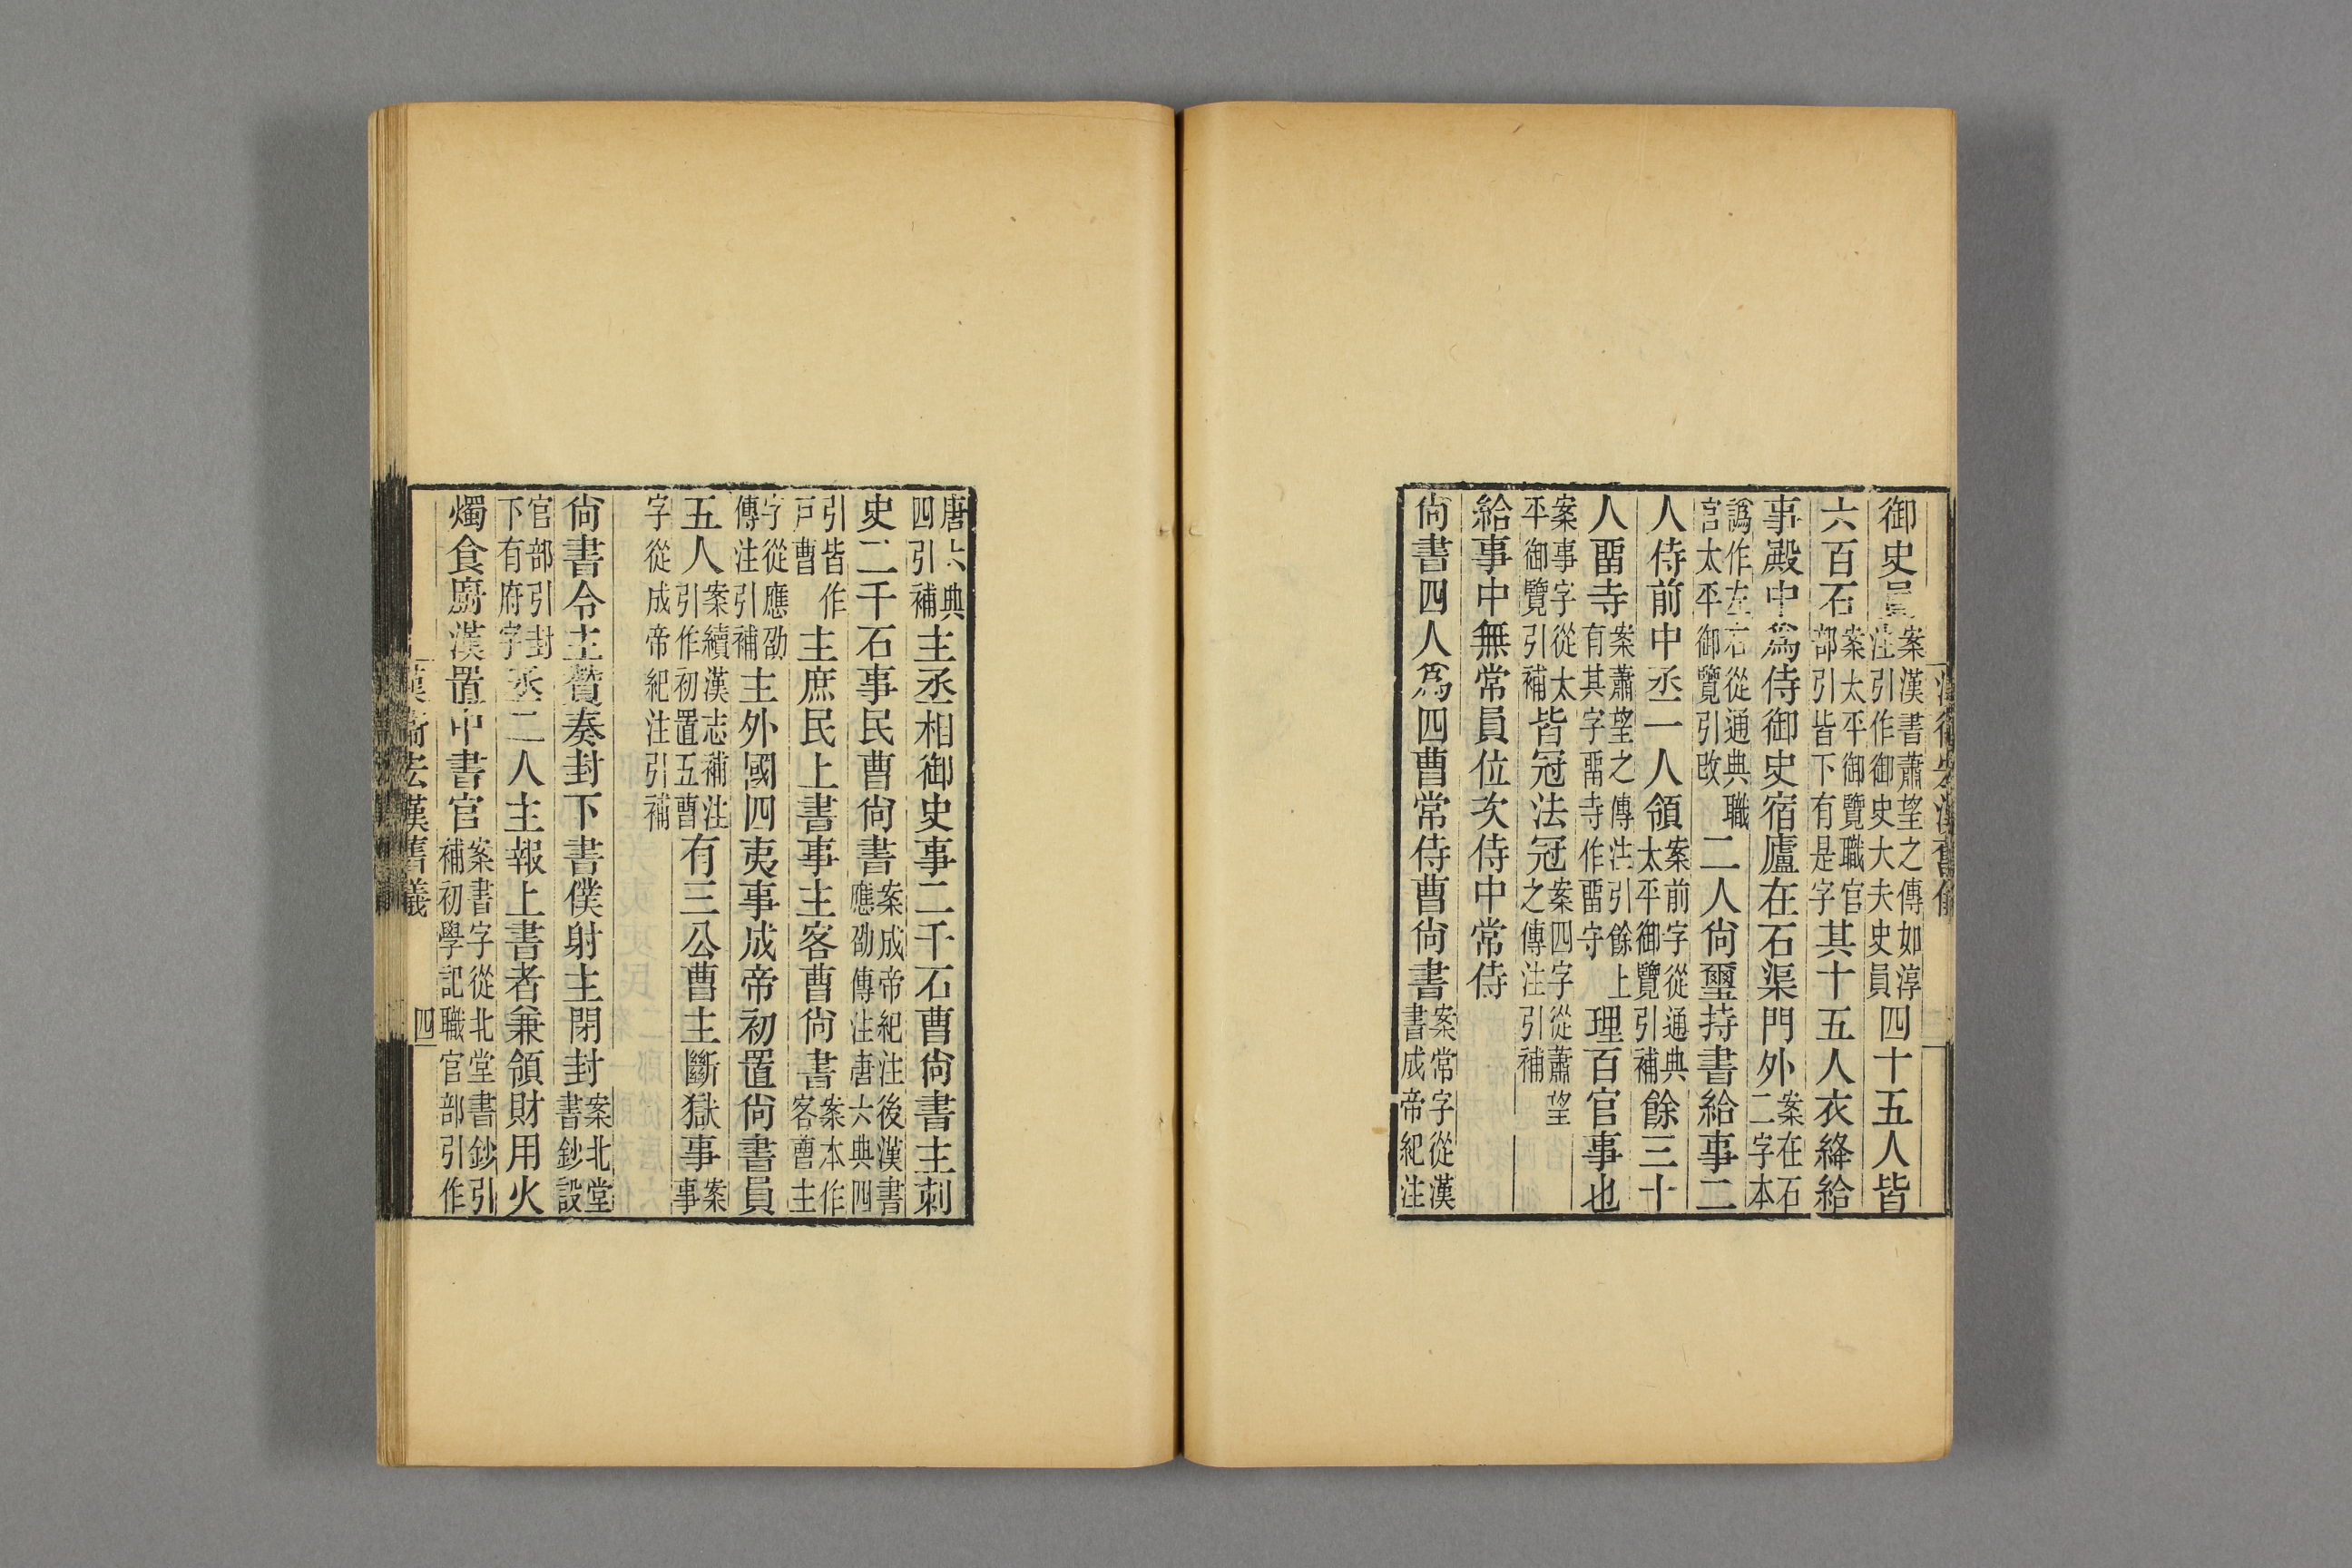 御史員案漢書蕭望之傳如淳注引作御史大夫史員四十五人皆
六百石案太平御覽職官部引皆下有是字其十五人衣絳給
事殿中爲侍御史宿廬在石渠門外案在石二字本
譌作左右從通典職官太平御覽引改二人尙璽持書給事二
人侍前中丞一人領案前字從通典太平御覽引補餘三十
人畱寺案蕭望之傳注引餘上有其字畱寺作畱守理百官事也
案事字從太平御覽引補皆冠法冠案四字從蕭望之傳注引補
給事中無常員位次侍中常侍
尙書四人爲四曹常侍曹尙書案常字從漢書成帝紀注
唐六典四引補主丞相御史事二千石曹尙書主刺
史二千石事民曹尙書案成帝紀注後漢書應劭傳注唐六典四
引皆作戸曹主庶民上書事主客曹尙書案本作客曹主
字從應劭傳注引補主外國四夷事成帝初置尙書員
五人案續漢志補注引作初置五曹有三公曹主斷獄事案事
字從成帝紀注引補
尙書令主贊奏封下書僕射主閉封案北堂書鈔設
官部引封下有府字丞二人主報上書者兼領財用火
燭食廚漢置中書官案書字從北堂書鈔引補初學記職官部引作
漢舊儀
四